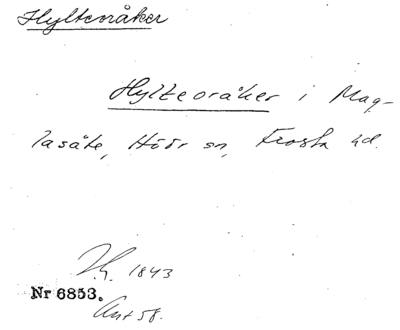 Hyltenåker
Hylteoråker i Mag-
lasäte, Höör sn, Frosta hd.
1843
Nr 6853.
Ant 58.